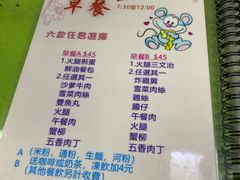 早餐
7:30至12:00
六款任您選擇
早餐A $45
1.火腿煎蛋
鮮油餐包
2.任選其一
沙爹牛肉
雪菜肉絲
雙魚丸
火腿
午餐肉
蟹柳
五香肉丁
早餐B $45
1.火腿三文治
2.任選其一
炸雞翼
雪菜肉絲
雞絲
腸仔
午餐肉
火腿
蟹柳
五香肉丁
A (米粉，通粉，生麵，河粉)
B 送咖啡或奶茶，凍飲加4元
(其他餐飲另計收費)